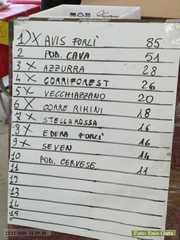 1) X AVIS FORLÌ 85
2 POD. CAVA 51
3 X AZZURRA 28
4 X GORRIFOREST 26
5 X VECCHIAZZANO 20
6 X CORRE RIMINI 18
7 X STELLA ROSSA 16
8 X EDERA FORLÌ 16
9 X SEVEN 14
10 POD. CERVESE 11
11
12
13
14
15